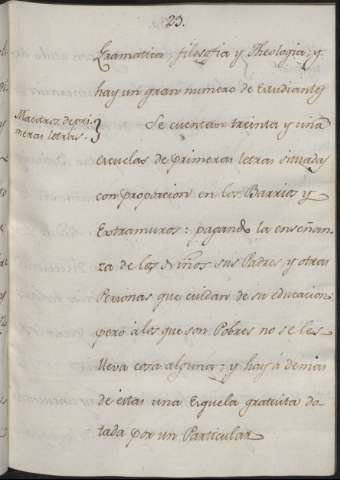 23.
Gramatica, filosofia y Theologia; y
hay un gran numero de Estudiantes
Maestros de pri-
meras letras.
Se cuentan treinta y una
escuelas de primeras letras situadas
con proporcion en los Barrios y
Extramuros: pagando la enseñan-
za de los Niños sus Padres, y otras
Personas que cuidan de su educacion,
pero á los que son Pobres no se les
lleva cosa alguna; y hay á demas
de estas una Esquela gratuita do-
tada por un Particular